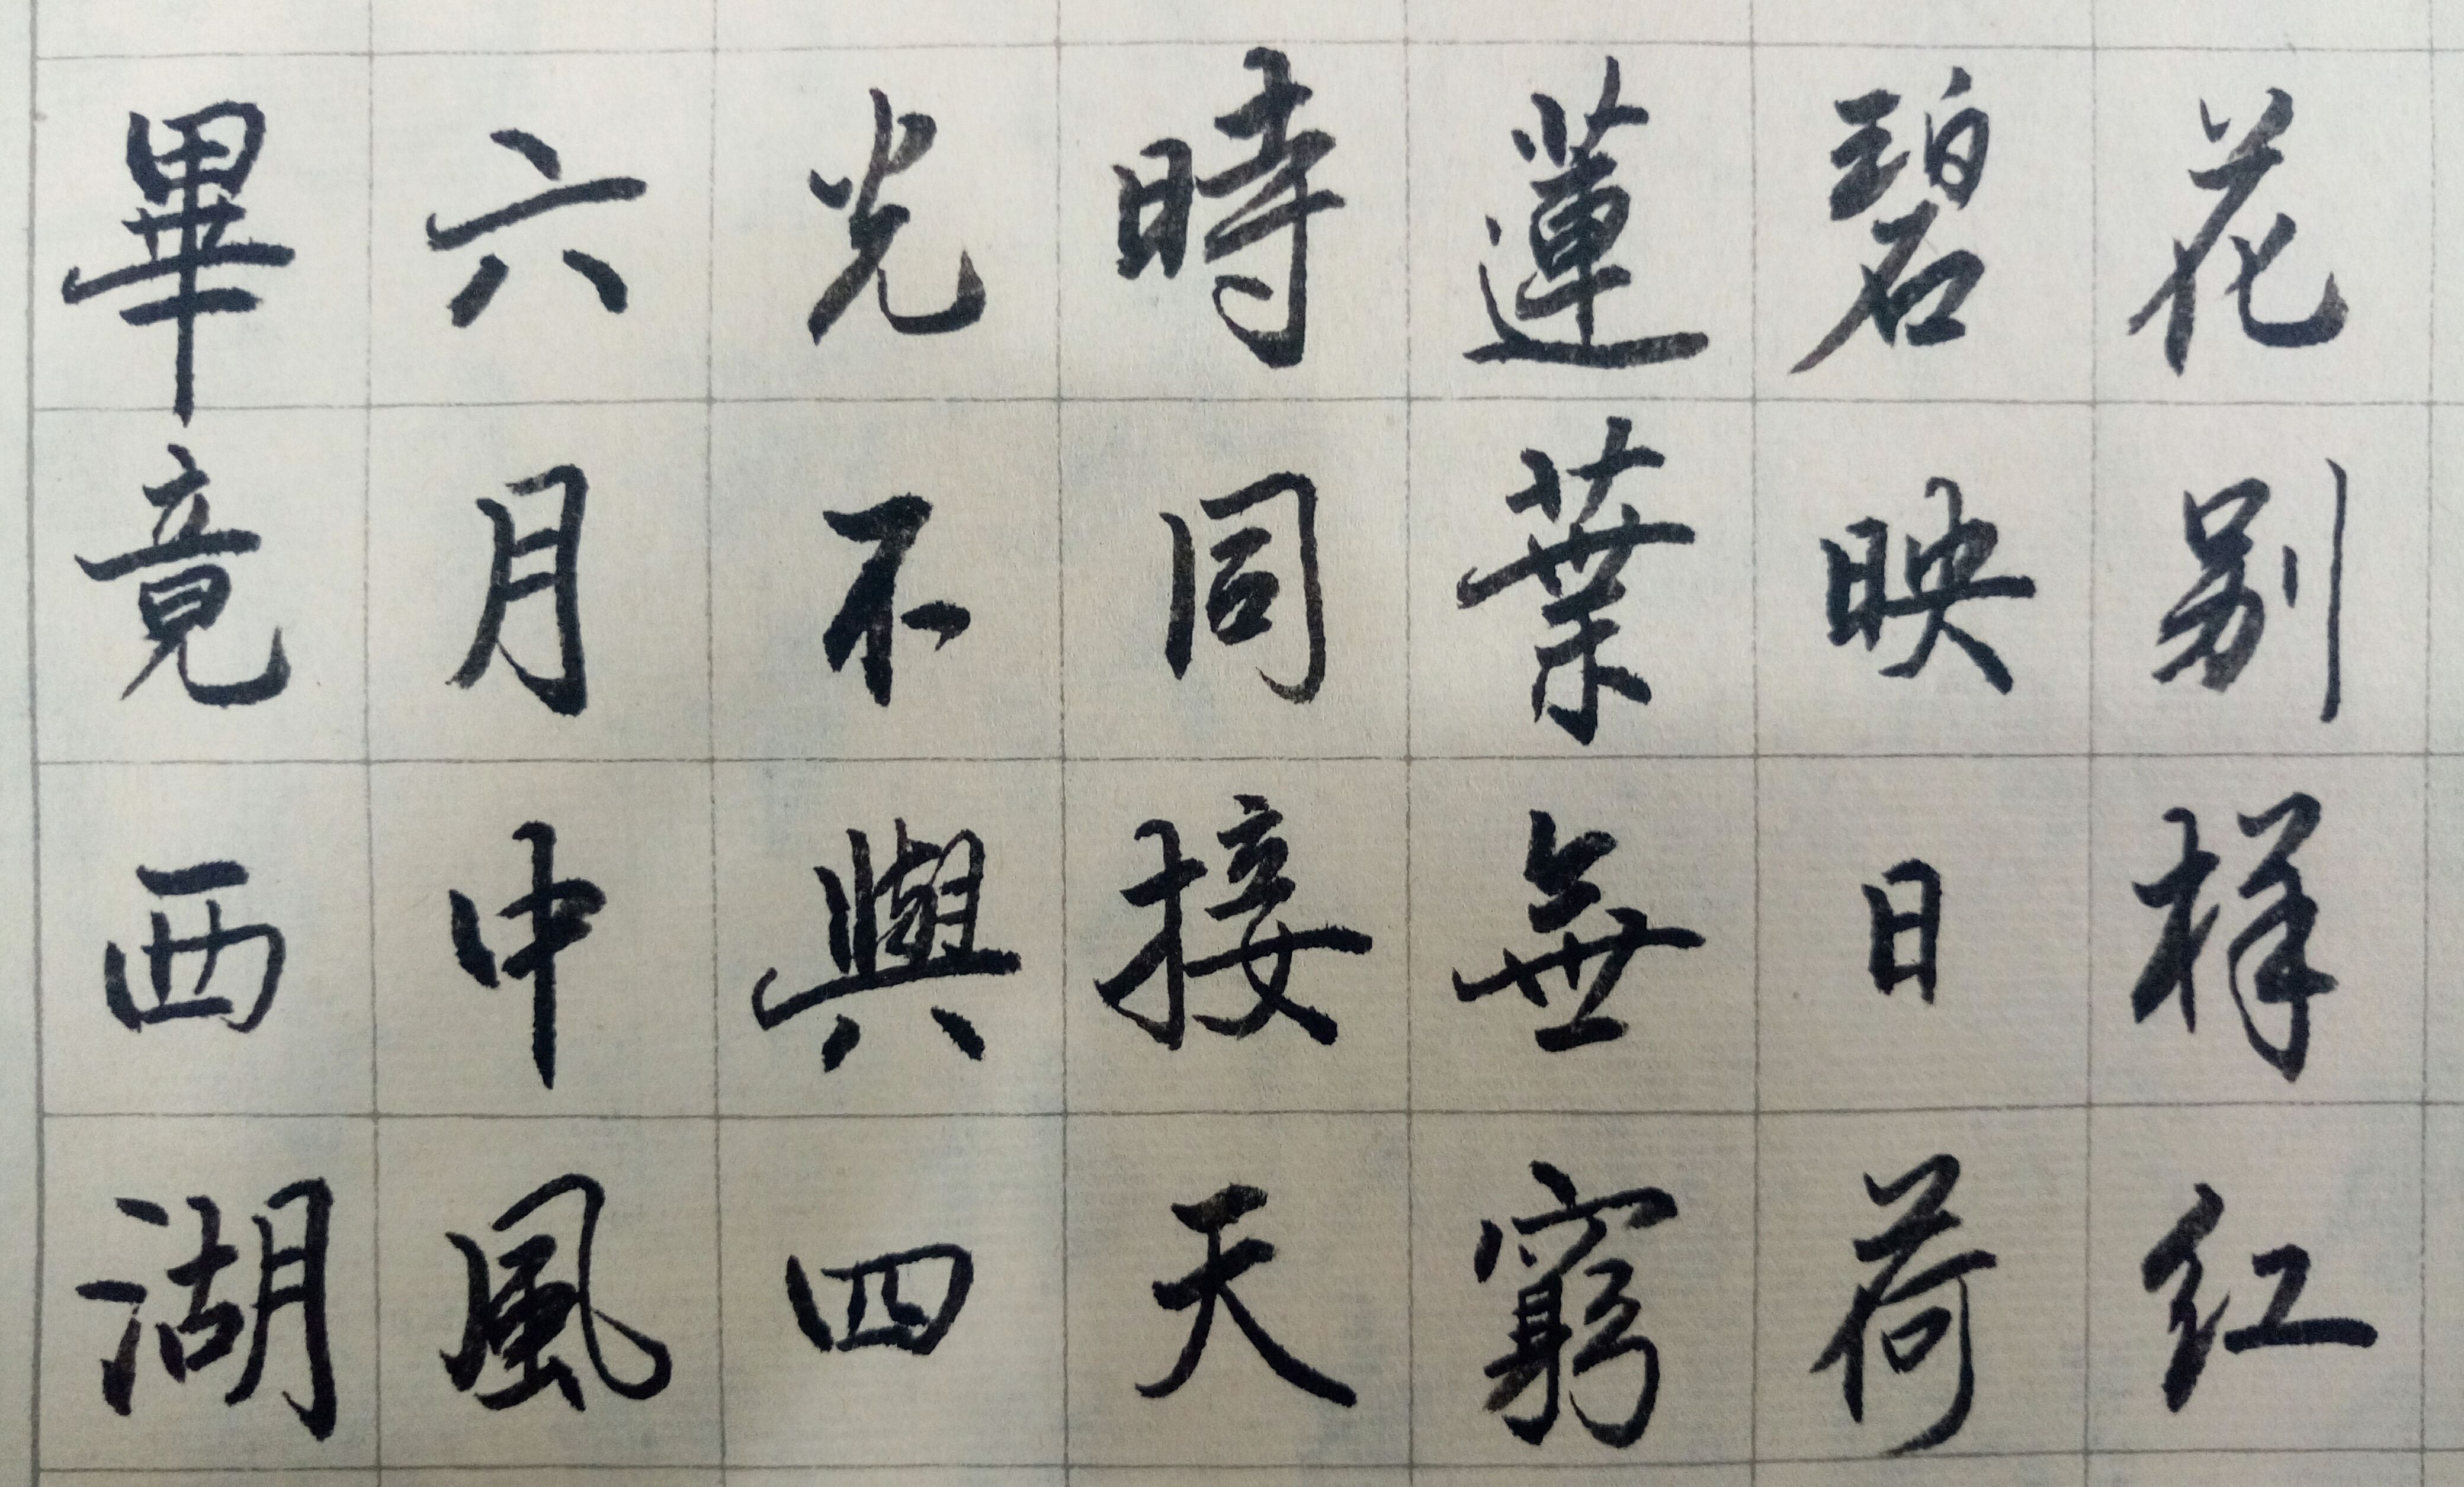 畢竟西湖
六月中風
光不與四
時同接天
蓮葉無窮
碧映日荷
花别样红